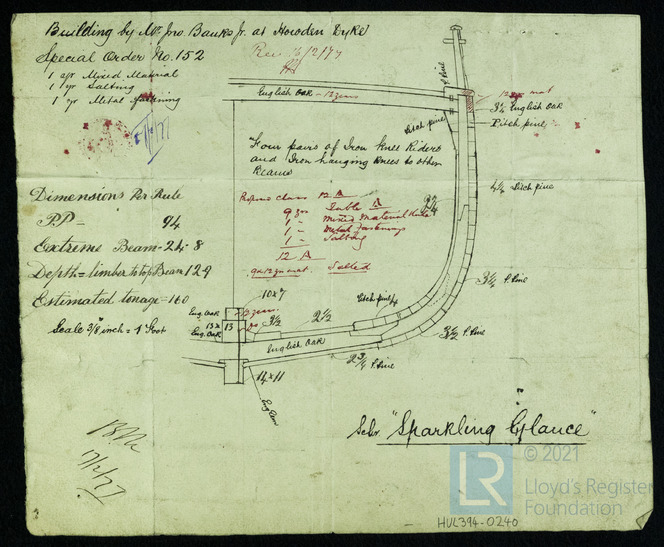 Building by Mr. Jno Banks Jr. at Howden Dyke
Special Order No. 152
1 yr Mixed Material
1 yr Salting
1 yr Metal Fastening
English Oak - 12 years
S. Pine
3½ English Oak
Pitch pine
Pitch pine
"Four pairs of Iron Knee Riders
and Iron hanging Knees to other
Beams
4½ Pitch pine
Dimensions Per Rule
PP - 94
Extreme Beam - 24 - 8
Depth - limber to top Beam 12 9
Estimated tonage = 160
Scale 3/8 inch = 1 Foot
12 A
9 yrs Table A
1 - Mixed Material Rule
1 - Metal Fastenings
1 - Salting
12 A
Salted
10 x 7
Eng. Oak
13 x 13
Eng. Oak
3½
2½
Pitch pine
3½ P. Pine
3½ P. Pine
English Oak
2¾ P. Pine
14 x 11
Eng Elm
17/12/77
Schr. "Sparkling Glance"
LR
© 2021
Lloyd's Register
Foundation
HUL394-0240